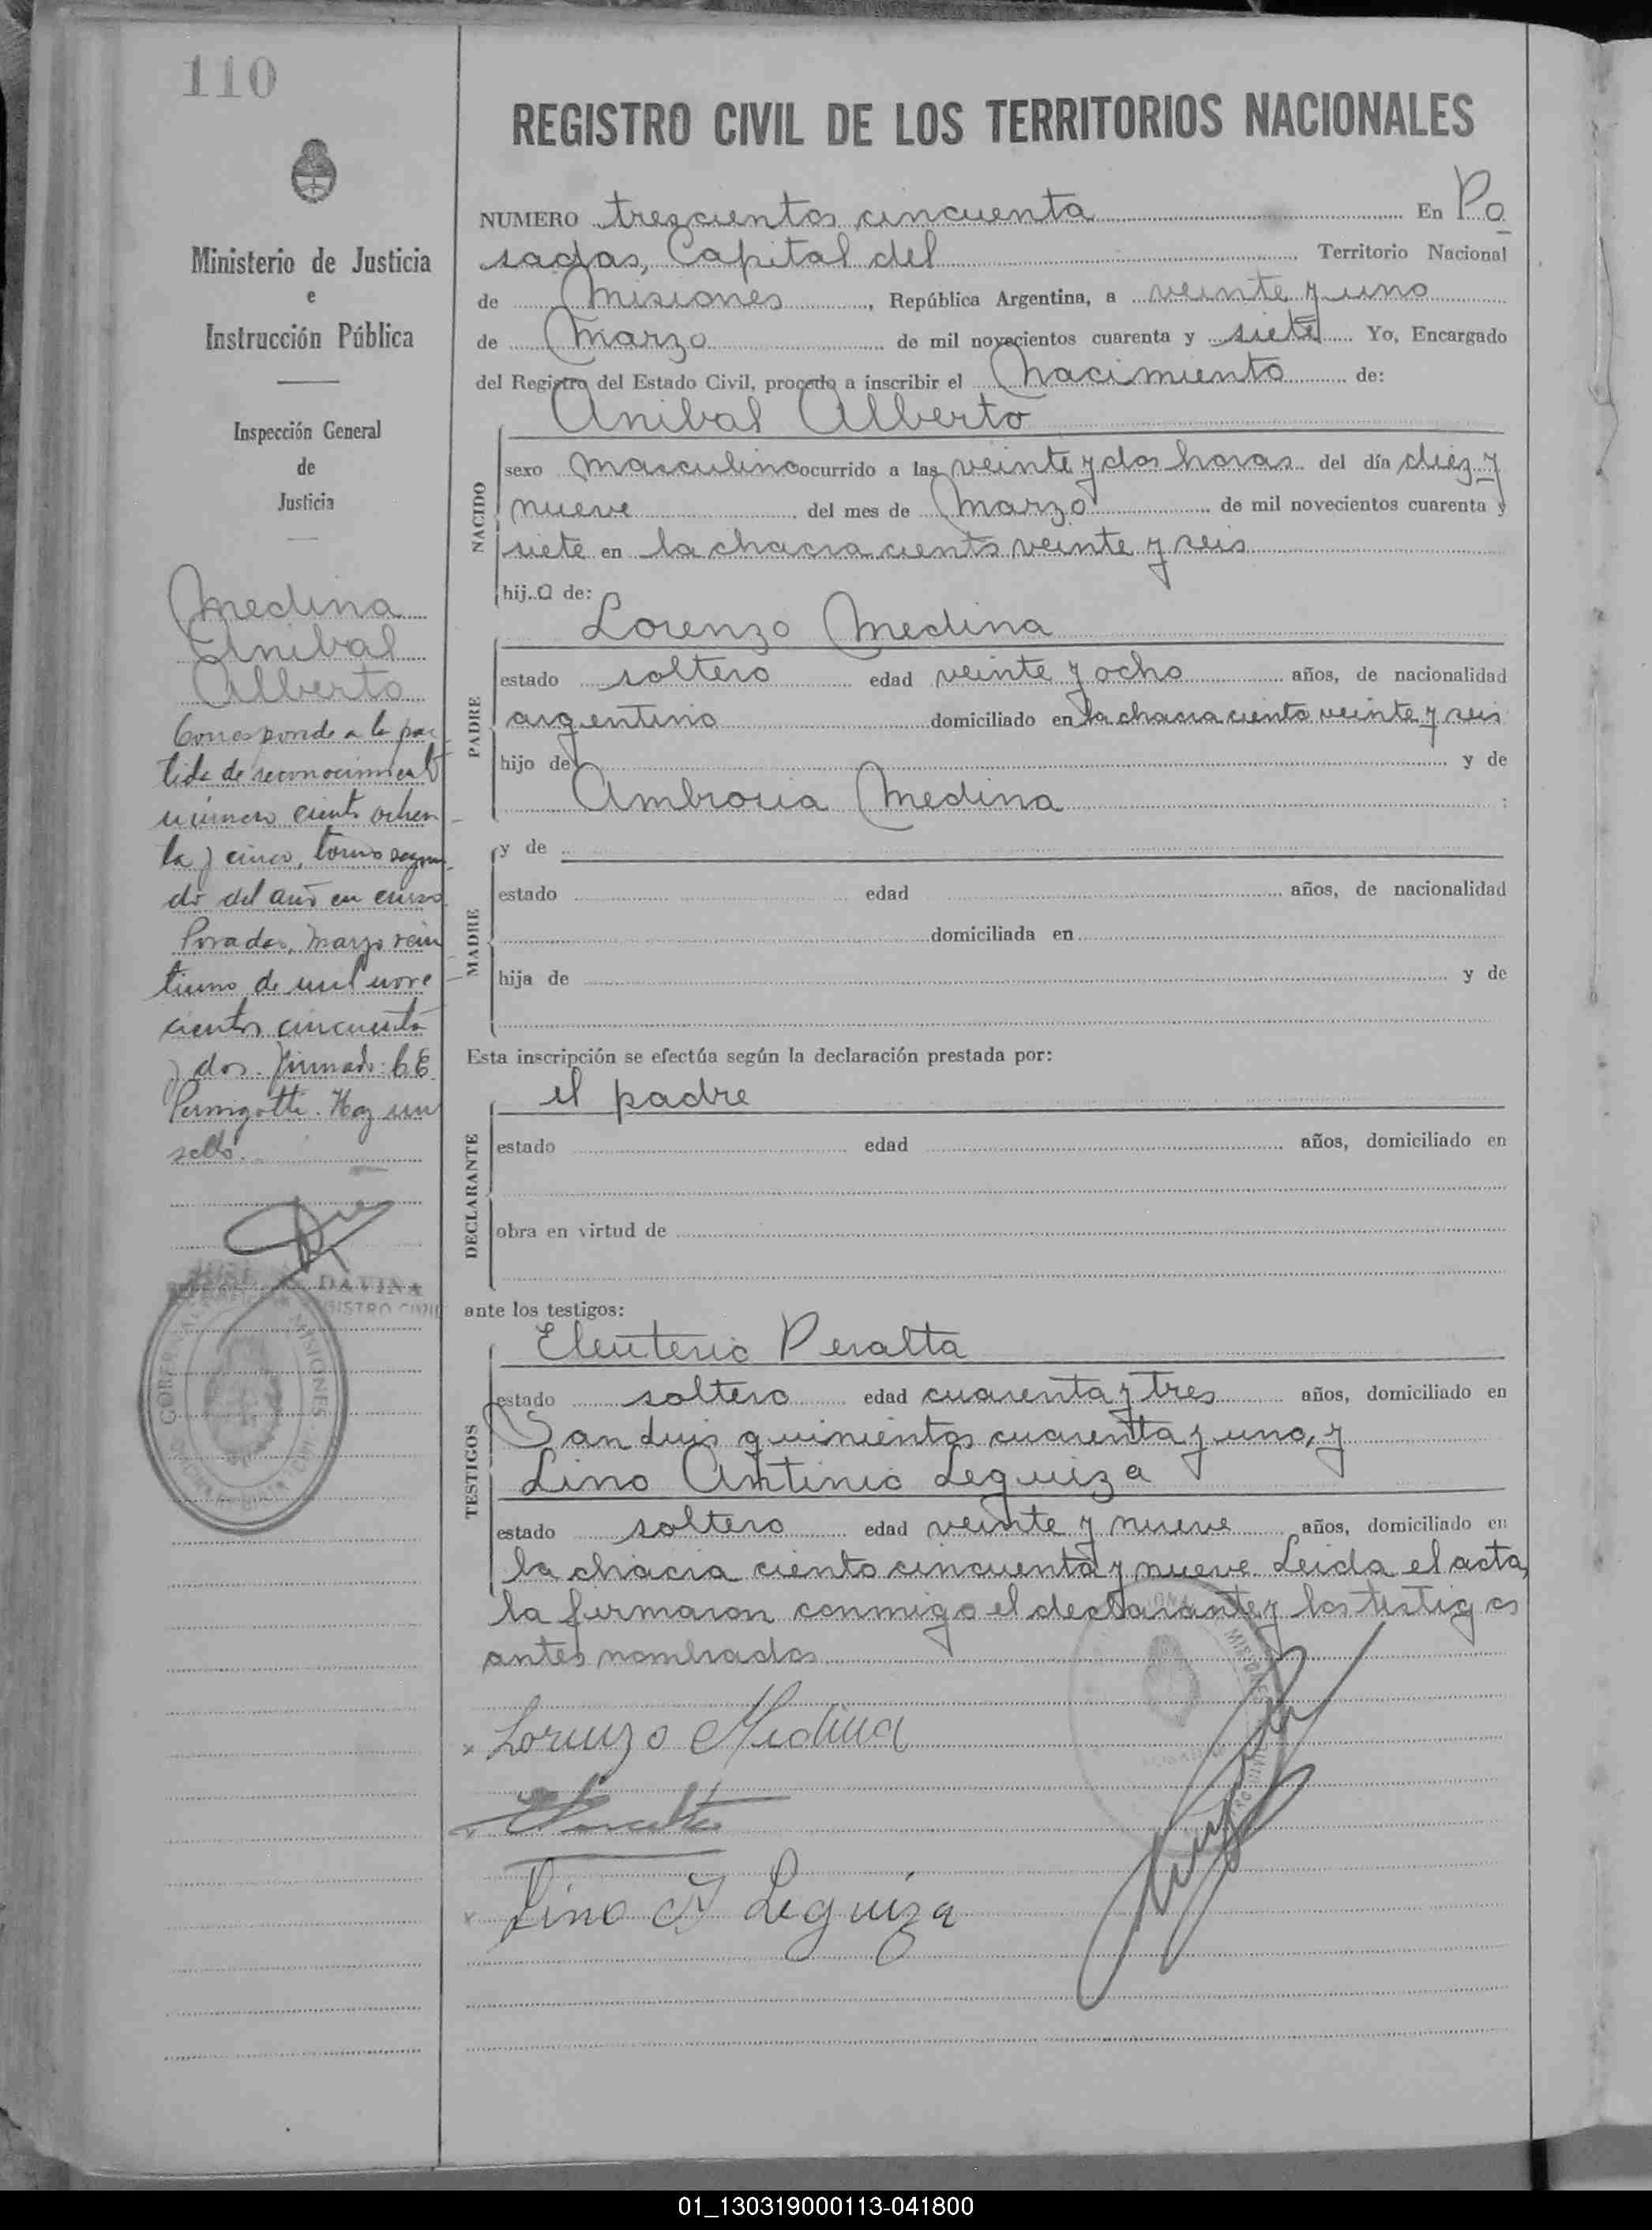 110
Ministerio de Justicia
e
Instrucción Pública
Inspección General
de
Justicia
Medina
Anibal
Alberto
Corresponde a la par
tida de reconocimiento
número ciento ochen
ta y cinco, tomo segun
do del año en curso
Posadas, marzo vein
tiuno de mil nove
cientos cincuenta
y dos. Firmado: C.E.
Pernigotti. Hay un
sello.
DAVIÑA
REGISTRO CIVIL
MISIONES
REGISTRO CIVIL DE LOS TERRITORIOS NACIONALES
NUMERO trescientos cincuenta En Po
sadas, Capital del Territorio Nacional
de Misiones, República Argentina, a veinte y uno
de Marzo de mil novecientos cuarenta y siete Yo, Encargado
del Registro del Estado Civil, procedo a inscribir el Nacimiento de:
Anibal Alberto
NACIDO
sexo masculino ocurrido a las veinte y dos horas del día diez y
nueve del mes de Marzo de mil novecientos cuarenta y
siete en la chacra ciento veinte y seis
hij.o de:
Lorenzo Medina
PADRE
estado soltero edad veinte y ocho años, de nacionalidad
argentino domiciliado en la chacra ciento veinte y seis
hijo de y de
Ambrosia Medina ;
MADRE
y de
estado edad años, de nacionalidad
domiciliada en
hija de y de
Esta inscripción se efectúa según la declaración prestada por:
el padre
DECLARANTE
estado edad años, domiciliado en
obra en virtud de
ante los testigos:
Eleuterio Peralta
TESTIGOS
estado soltero edad cuarenta y tres años, domiciliado en
San Luis quinientos cuarenta y uno, y
Lino Antinio Leguiza
estado soltero edad veinte y nueve años, domiciliado en
la chacra ciento cincuenta y nueve. Leida el acta,
la firmaron conmigo el declarante y los testigos
antes nombrados
MISIONES
x Lorenzo Medina
x EPeralta
x Lino A Leguiza
01_130319000113-041800